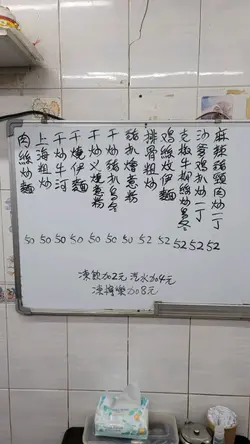 麻辣豬頸肉炒一丁
沙爹雞扒炒一丁
克椒牛柳絲炒烏冬
雞絲炆伊麵
排骨粗炒
豬扒燴意粉
干炒豬扒烏冬
干炒义燒意粉
干燒伊麵
干炒牛河
上海粗炒
肉絲炒麵
50 50 50 50 50 50 50 52 52 52 52 52
凍飲加2元 汽水加4元
凍檸樂加8元